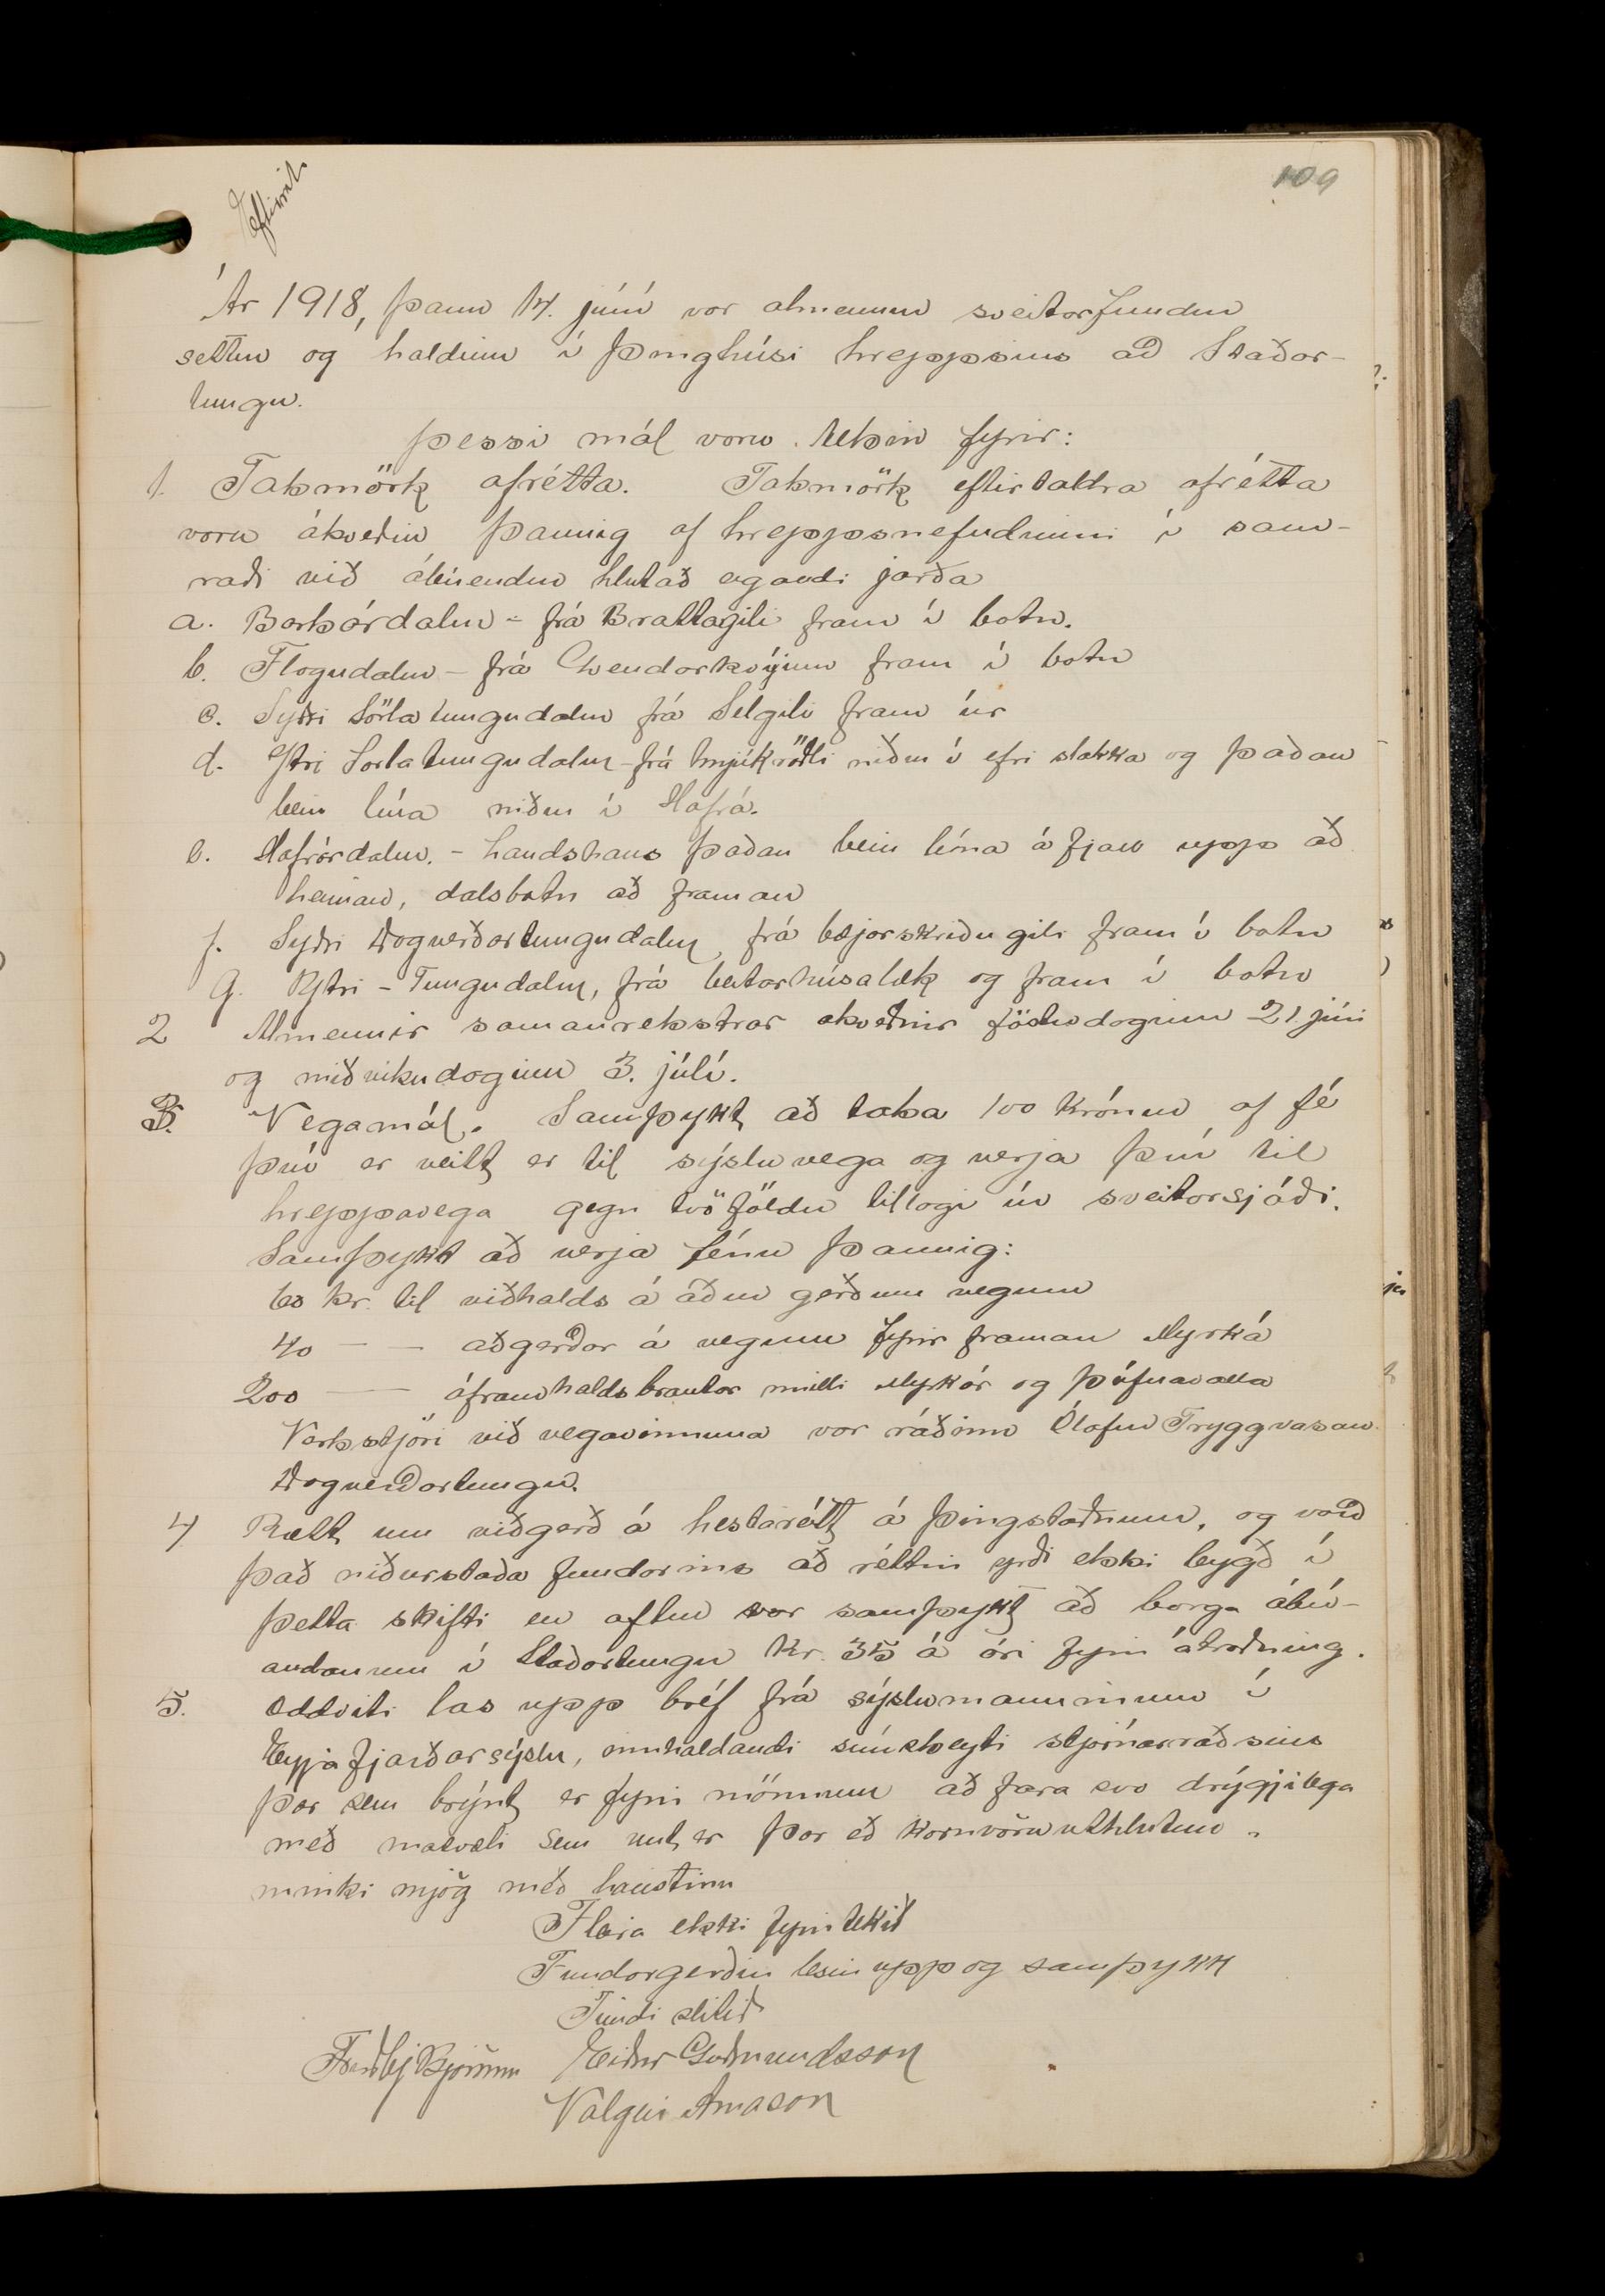 109
Eftirrit
Ár 1918, þann 14. júní var almennur sveitarfundur
settur og haldinn í þinghúsi hreppsins að Staðar-
tungu.
Þessi mál voru tekin fyrir:
1. Takmörk afrétta. Takmörk eftirtaldra afrétta
voru ákveðin þannig af hreppsnefndinni í sam-
ráði við ábúendur hlutað eigandi jarða
a. Barkárdalur - frá Brattagili fram í botn.
b. Flögudalur - frá fram í botn
c. Syðri Sörlatungudalur frá Selgili fram úr
d. Ytri Sörlatungudalur - frá niður í efri stakka og þaðan
bein lína niður í Hafrá.
e. Hafrárdalur. - þaðan bein lína á fjall upp að
heiman, dalsbotn að framan
f. Syðri Dagverðartungudalur, frá bæjarskriðugili fram í botn
g. Ytri - Tungudalur, frá beitarhúsalæk og fram í botn
2 Almennir samanrekstrar ákveðnir föstudaginn 21 júní
og miðvikudaginn 3. júlí.
3. Vegamál. Samþykt að taka 100 krónur af fé
því er veitt er til sýsluvega og verja því til
hreppavega gegn tvöföldu tillagi úr sveitarsjóði.
Samþykt að verja fénu þannig:
60 kr. til viðhalds á áður gerðum vegum
40 — — aðgerðar á vegum fyrir framan Myrká
200 — áframhaldsbrautar milli Myrkár og Þúfnavalla
Verkstjóri við vegavinnuna var ráðinn Ólafur Tryggvason
Dagverðartungu.
4 Rætt um viðgerð á hestarétt á þingstaðnum, og varð
það niðurstaða fundarins að réttin yrði ekki bygð í
þetta skifti en aftur var samþykt að borga ábú-
andanum í Staðartungu kr. 35 á ári fyrir átroðning.
5. Oddviti las upp bréf frá sýslumanninum í
Eyjafjarðarsýslu, innihaldandi símskeyti stjórnarráðsins
þar sem brýnt er fyrir mönnum að fara svo drýgilega
með matvæli sem unt er þar eð kornvöruúthlutun
minki mjög með haustinu
Fleira ekki fyrirtekið
Fundargerðin lesin upp og samþykt
Fundi slitið
Friðbj Björnsson Eiður Guðmundsson
Valgeir Árnason